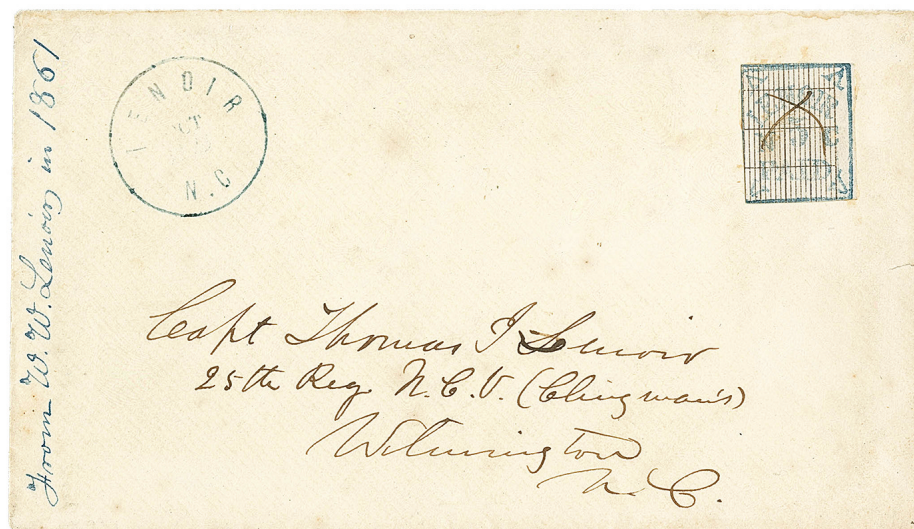 From W. W. Lenoir, in 1861
LENOIR
OCT
N.C
Capt Thomas I Lenoir
25th Reg. N. C. V. (Clingman's)
Wilmington
N. C.